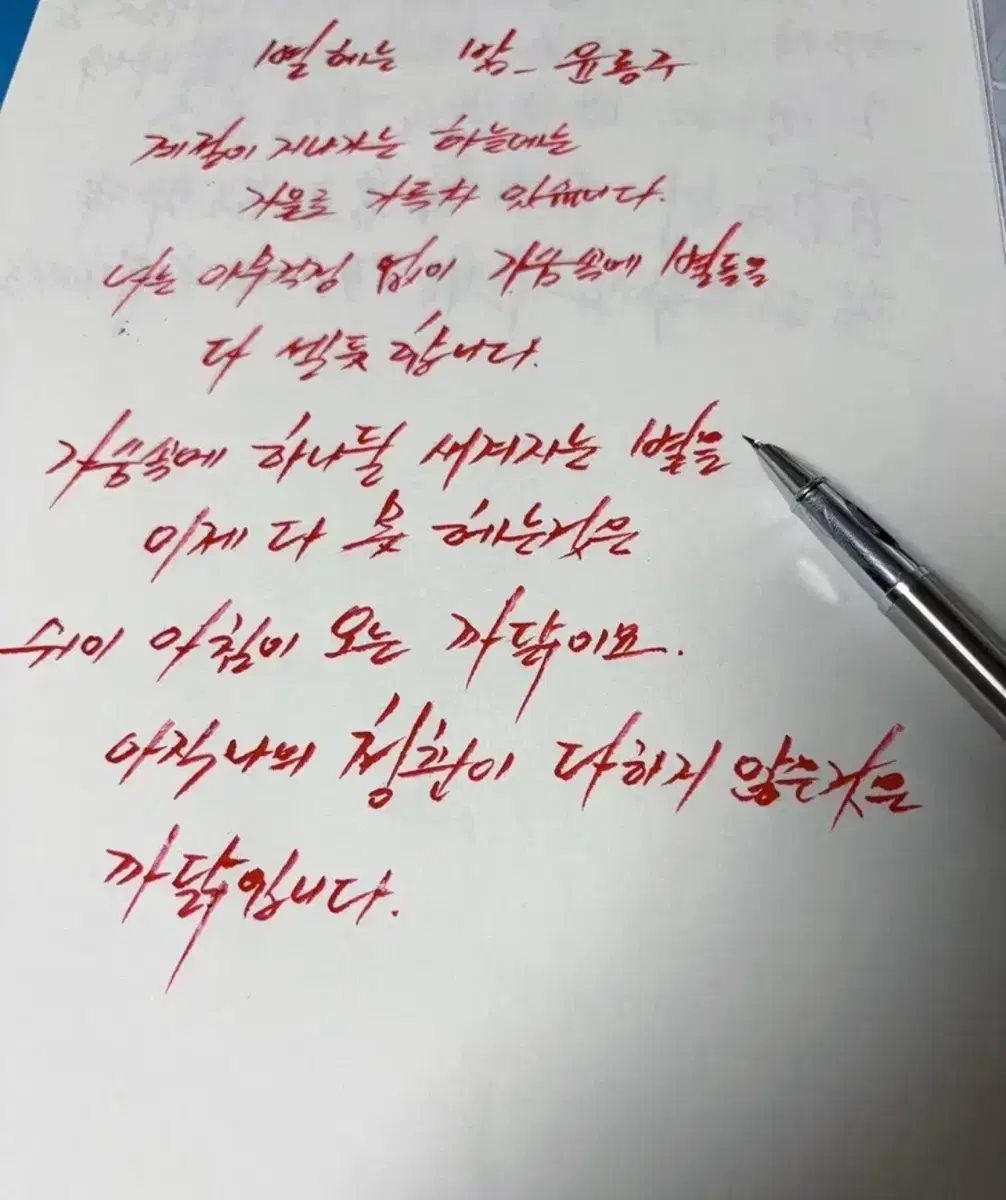 별헤는 밤_ 윤동주
계절이 지나가는 하늘에는
가을로 가득차 있습니다.
나는 아무걱정 없이 가슴속에 별들을
다 셀듯 합니다.
가슴속에 하나둘 새겨지는 별을
이제 다 못 헤는것은
쉬이 아침이 오는 까닭이요.
아직 나의 청춘이 다하지 않은것은
까닭입니다.